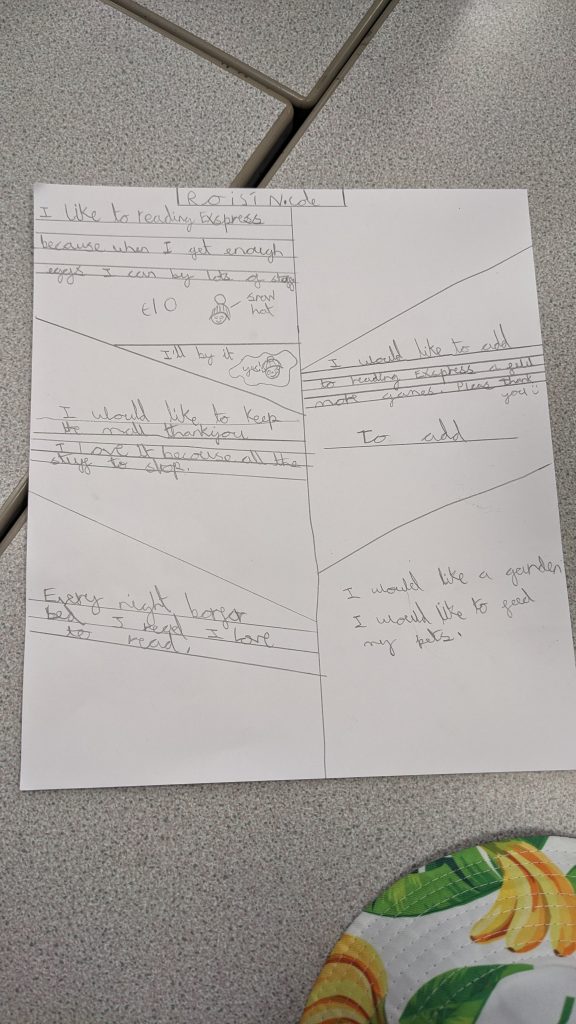 I like to reading Exspress
because when I get enough
eggs I can by lots of
£10
snow
hat
I'll by it
yes!
I would like to keep
the mall thankyou
I love it because all the
stuff to shop.
Every night borfor
bed I read I love
to read.
I would like to add
to reading Exspress a
more games. Pleas thank
you
To add
I would like a garden
I would like to feed
my pets.